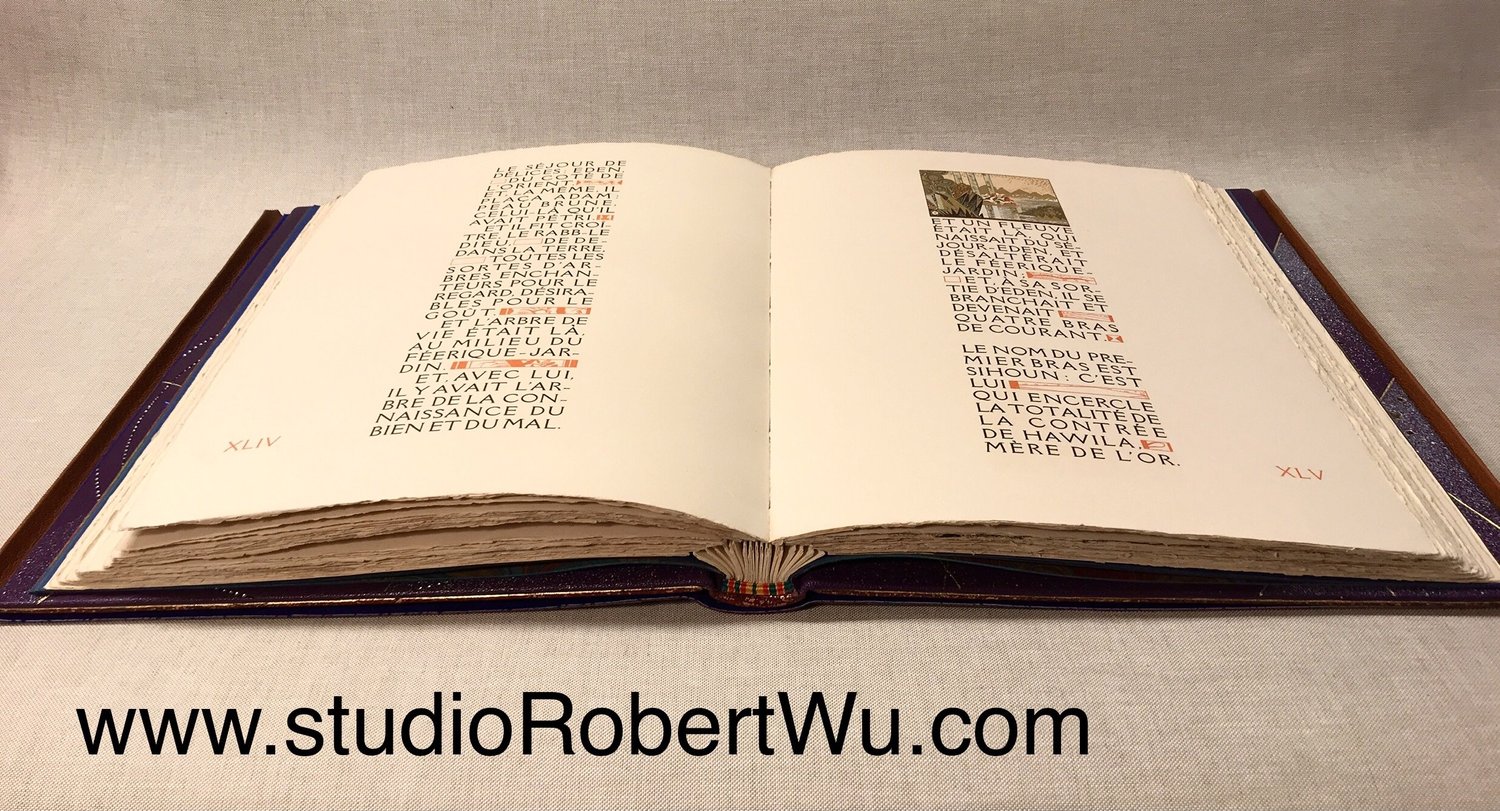 LE SÉJOUR DE
DÉLICES: EDEN,
DU CÔTÉ DE
L'ORIENT.
ET LÀ MÊME, IL
PLAÇA "ADAM":
PEAU BRUNE,
CELUI-LÀ QU'IL
AVAIT PÉTRI.
ET IL FIT CROI-
TRE, LE RABB-LE
DIEU, DE DE-
DANS LA TERRE,
TOUTES LES
SORTES D'AR-
BRES ENCHAN-
TEURS POUR LE
REGARD, DÉSIRA-
BLES POUR LE
GOÛT.
ET L'ARBRE DE
VIE ÉTAIT LÀ,
AU MILIEU DU
FÉERIQUE-JAR-
DIN.
ET, AVEC LUI,
IL Y AVAIT L'AR-
BRE DE LA CON-
NAISSANCE DU
BIEN ET DU MAL.
XLIV
ET UN FLEUVE
ÉTAIT LÀ, QUI
NAISSAIT DU SÉ-
JOUR, EDEN, ET
DÉSALTÉRAIT
LE FÉERIQUE-
JARDIN;
ET, À SA SOR-
TIE D'EDEN, IL SE
BRANCHAIT ET
DEVENAIT
QUATRE BRAS
DE COURANT.
LE NOM DU PRE-
MIER BRAS EST
SIHOUN: C'EST
LUI
QUI ENCERCLE
LA TOTALITÉ DE
LA CONTRÉE
DE HAWILA,
MÈRE DE L'OR.
XLV
www.studioRobertWu.com